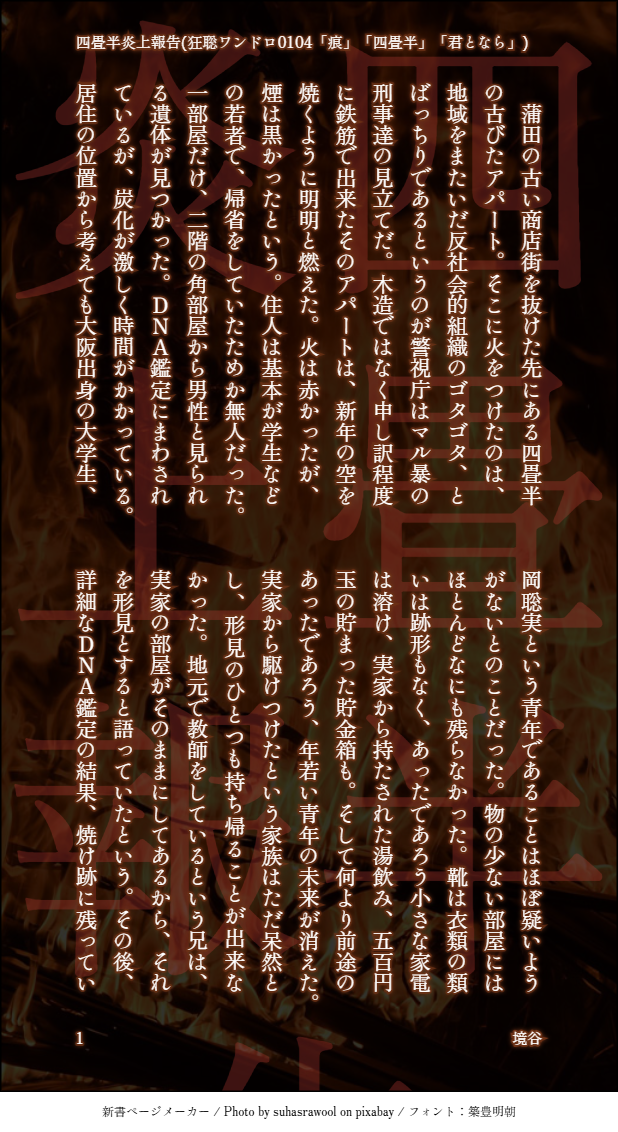 四畳半炎上報告(狂聡ワンドロ0104「痕」「四畳半」「君となら」)
蒲田の古い商店街を抜けた先にある四畳半
の古びたアパート。そこに火をつけたのは、
地域をまたいだ反社会的組織のゴタゴタ、と
ばっちりであるというのが警視庁はマル暴の
刑事達の見立てだ。木造ではなく申し訳程度
に鉄筋で出来たそのアパートは、新年の空を
焼くように明明と燃えた。火は赤かったが、
煙は黒かったという。住人は基本が学生など
の若者で、帰省をしていたためか無人だった。
一部屋だけ、二階の角部屋から男性と見られ
る遺体が見つかった。DNA鑑定にまわされ
ているが、炭化が激しく時間がかかっている。
居住の位置から考えても大阪出身の大学生、
岡聡実という青年であることはほぼ疑いよう
がないとのことだった。物の少ない部屋には
ほとんどなにも残らなかった。靴は衣類の類
いは跡形もなく、あったであろう小さな家電
は溶け、実家から持たされた湯飲み、五百円
玉の貯まった貯金箱も。そして何より前途の
あったであろう、年若い青年の未来が消えた。
実家から駆けつけたという家族はただ呆然と
し、形見のひとつも持ち帰ることが出来な
かった。地元で教師をしているという兄は、
実家の部屋がそのままにしてあるから、それ
を形見とすると語っていたという。その後、
詳細なDNA鑑定の結果、焼け跡に残ってい
1
境谷
四畳半
炎上報告
新書ページメーカー / Photo by suhasrawool on pixabay / フォント：築豊明朝